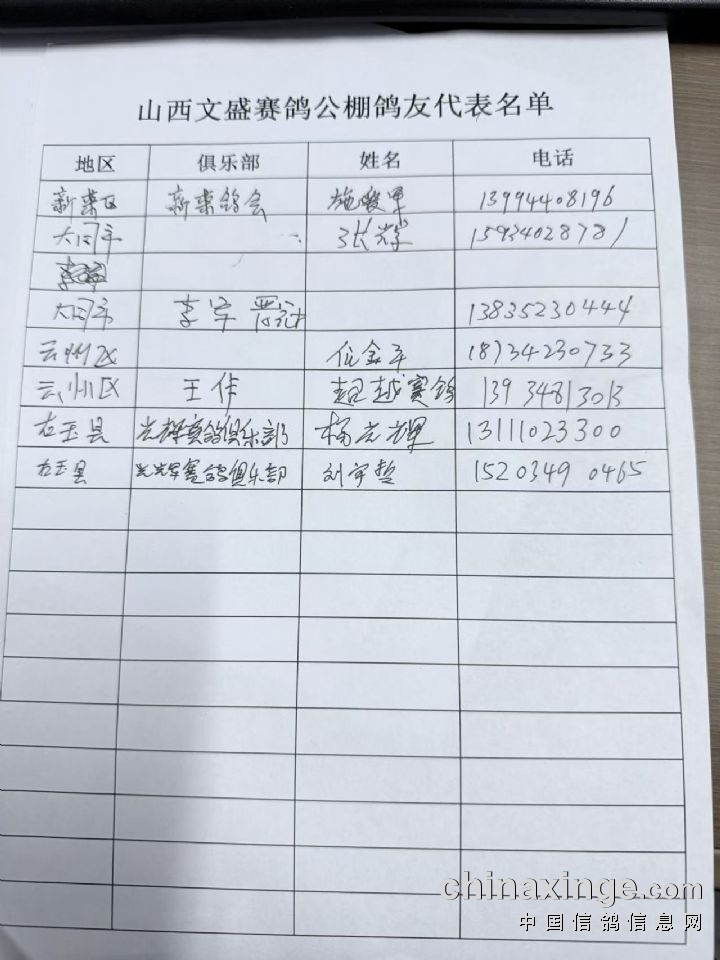 山西文盛赛鸽公棚鸽友代表名单
地区 俱乐部 姓名 电话
新荣区 新荣鸽会 13994408196
大同市 张 15934028781
大同市 李军 13835230444
云州区 18734230733
云州区 王伟 超越赛鸽 13934813013
右玉县 光辉赛鸽俱乐部 杨光辉 13111023300
右玉县 光辉赛鸽俱乐部 刘宇哲 15203490465
chinaxinge.com
中国信鸽信息网